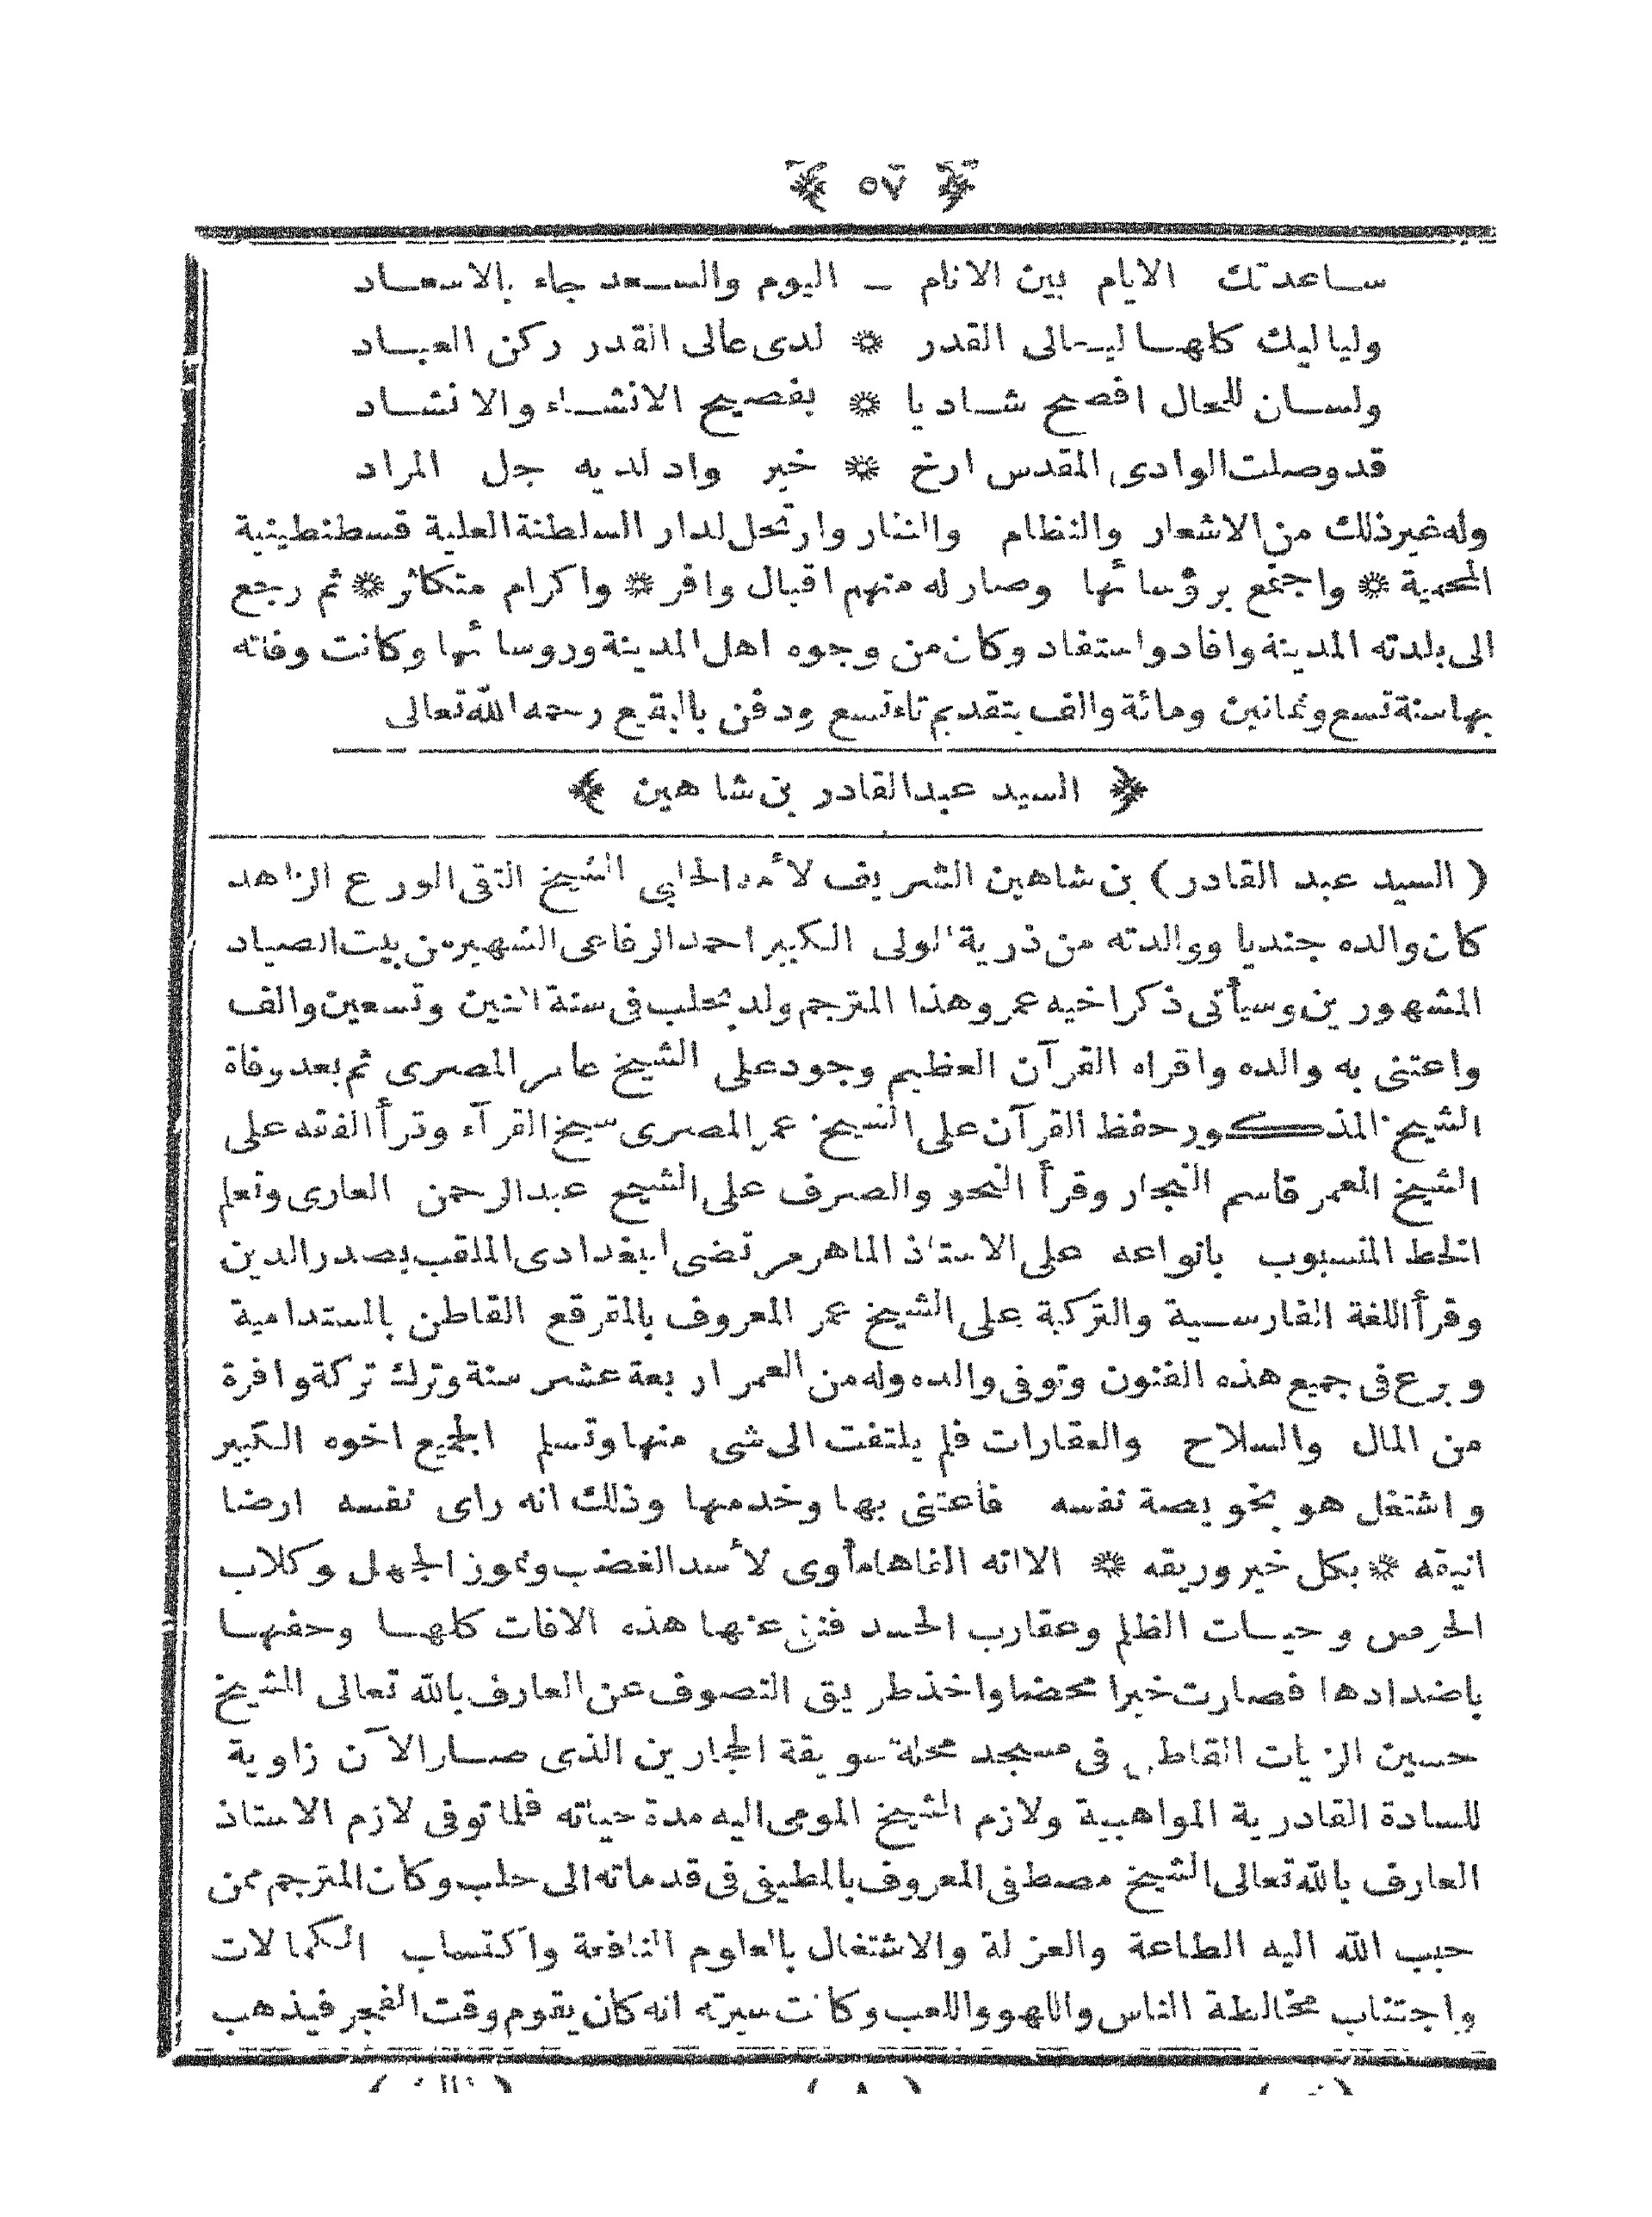 ﴿ ٥٧ ﴾
ساعدتك الايام بين الانام ـ اليوم والسعد جاء بالاسعاد
ولياليك كلها ليالى القدر * لدى عالى القدر ركن العباد
ولسان للحال افصح شاديا * بفصيح الانشاء والانشاد
قدوصلت الوادى المقدس ارخ * خير واد لديه جل المراد
وله غير ذلك من الاشعار والنظام والنثار وارتحل لدار السلطنة العلية قسطنطينية
المحمية * واجتمع برؤسائها وصار له منهم اقبال وافر * واكرام متكاثر * ثم رجع
الى بلدته المدينة وافاد واستفاد وكان من وجوه اهل المدينة وروسائها وكانت وفاته
بها سنة تسع وثمانين ومائة والف بتقديم تاء تسع ودفن بالبقيع رحمه الله تعالى
﴿ السيد عبدالقادر بن شاهين ﴾
( السيد عبد القادر ) بن شاهين الشريف لأمه الحلبى الشيخ التقى الورع الزاهد
كان والده جنديا ووالدته من ذرية الولى الكبير احمد الرفاعى الشهير من بيت الصياد
المشهورين وسيأتى ذكر اخيه عمر وهذا المترجم ولد بحلب فى سنة اثنين وتسعين والف
واعتنى به والده واقراه القرآن العظيم وجود على الشيخ عامر المصرى ثم بعد وفاة
الشيخ المذكور حفظ القرآن على الشيخ عمر المصرى شيخ القرآء وقرأ الفقه على
الشيخ المعمر قاسم النجار وقرأ النحو والصرف على الشيخ عبد الرحمن العارى وتعلم
الخط المنسوب بانواعه على الاستاذ الماهر مرتضى البغدادى الملقب بصدر الدين
وقرأ اللغة الفارسية والتركية على الشيخ عمر المعروف بالمقرقع القاطن بالمستدامية
وبرع فى جميع هذه الفنون وتوفى والده وله من العمر اربعة عشر سنة وترك تركة وافرة
من المال والسلاح والعقارات فلم يلتفت الى شى منها وتسلم الجميع اخوه الكبير
واشتغل هو بخويصة نفسه فاعتنى بها وخدمها وذلك انه راى نفسه ارضا
انيقه * بكل خير وريقه * الا انه الفاها مأوى لأسد الغضب ونموز الجهل وكلاب
الحرص وحيات الظلم وعقارب الحسد فنفى عنها هذه الافات كلها وحفها
باضدادها فصارت خيرا محضا واخذ طريق التصوف عن العارف بالله تعالى الشيخ
حسين الزيات القاطن فى مسجد محلة سويقة الحجارين الذى صار الآن زاوية
للسادة القادرية المواهبية ولازم الشيخ المومى اليه مدة حياته فلما توفى لازم الاستاذ
العارف بالله تعالى الشيخ مصطفى المعروف بالمطيفى فى قدماته الى حلب وكان المترجم ممن
حبب الله اليه الطاعة والعزلة والاشتغال بالعلوم النافعة واكتساب الكمالات
واجتناب مخالطة الناس واللهو واللعب وكانت سيرته انه كان يقوم وقت الفجر فيذهب